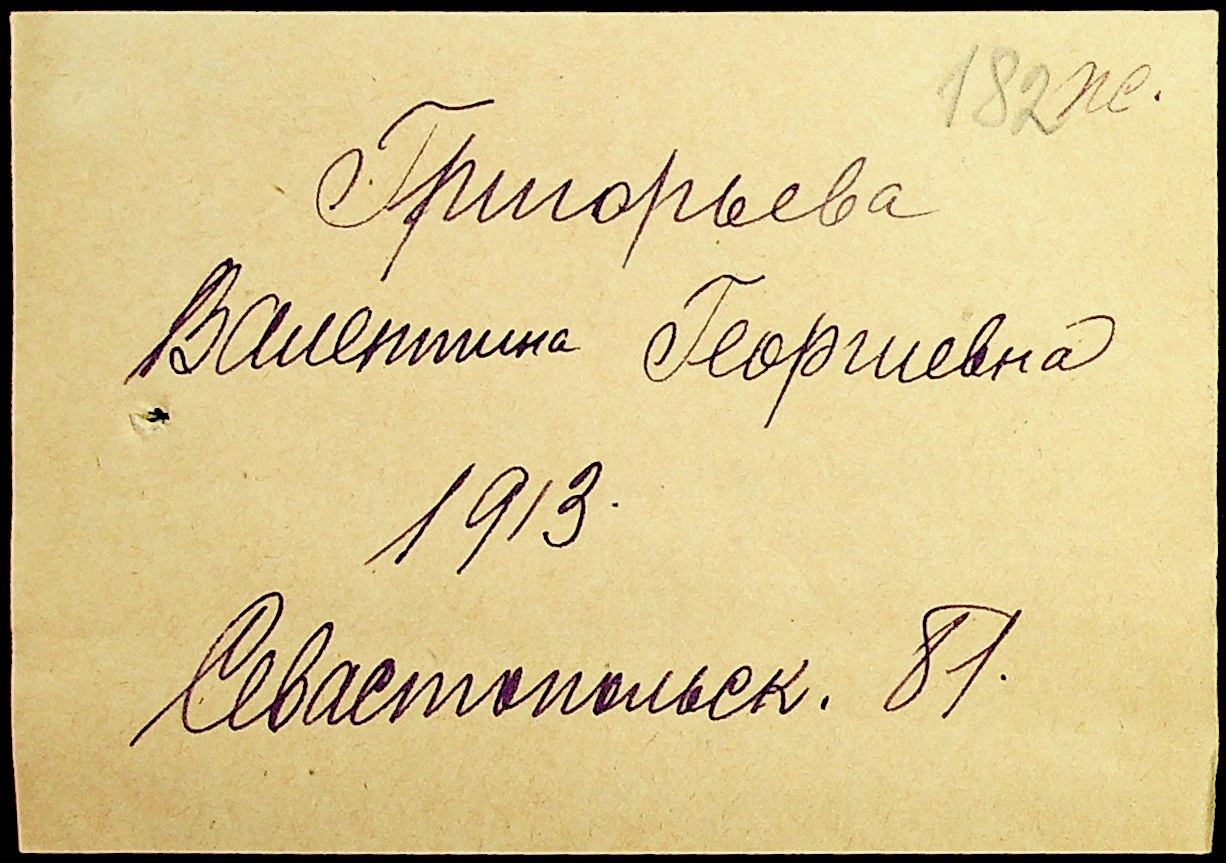 182 ж.
Григорьева
Валентина Георгиевна
1913.
Севастопольск. 81.